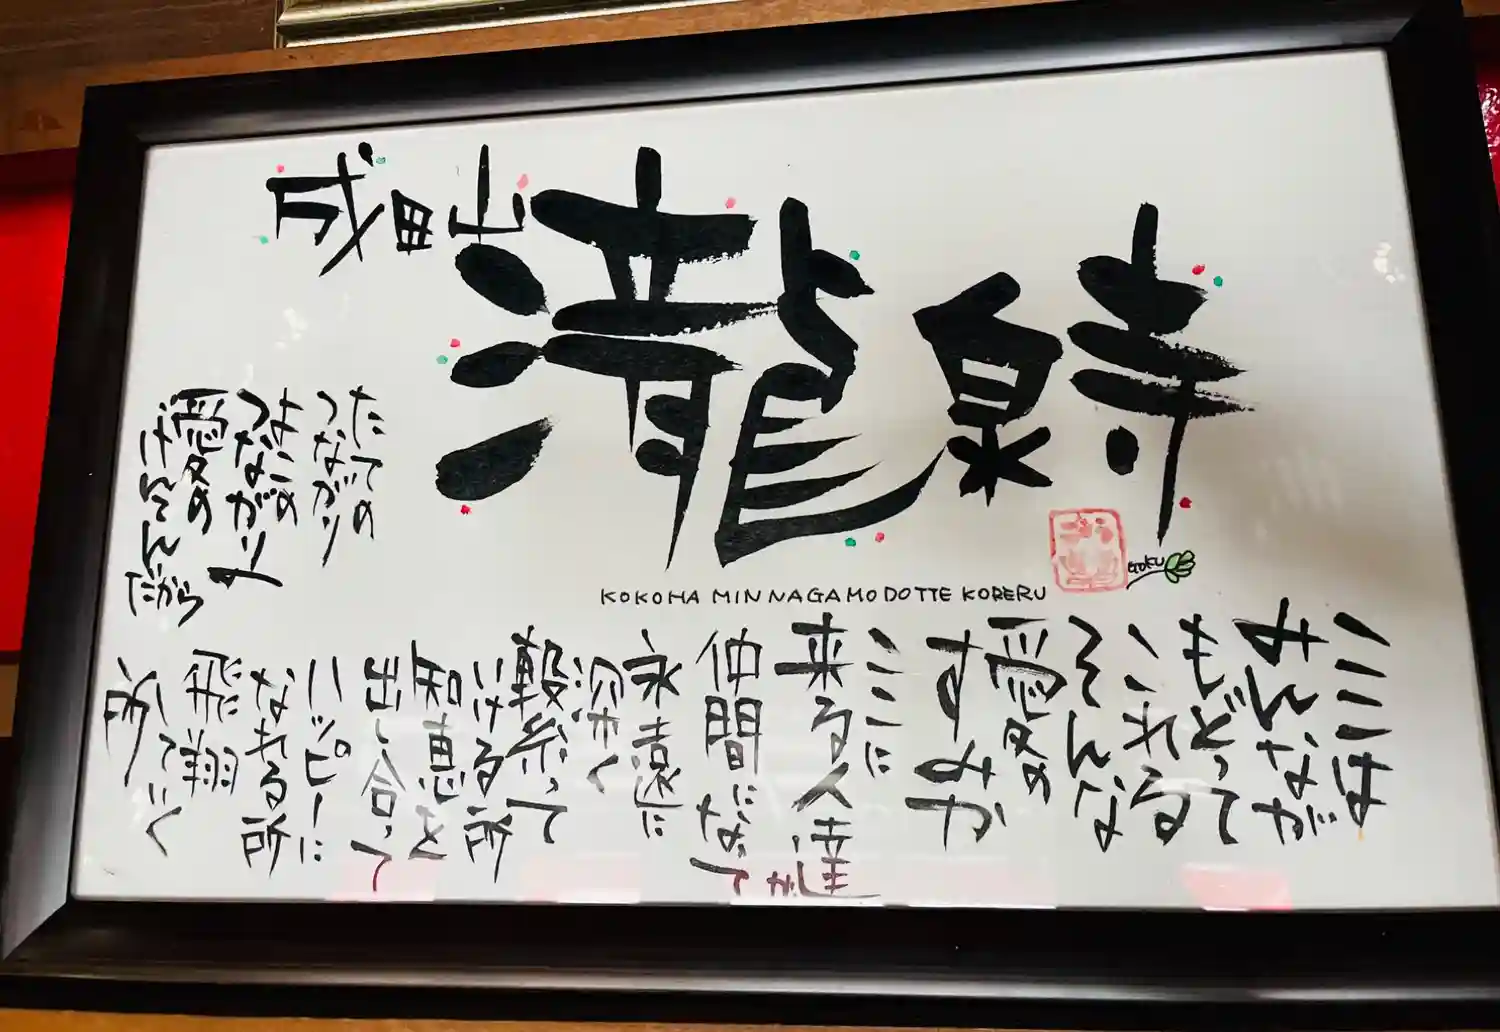 成田山
瀧泉寺
KOKOHA MINNAGA MODOTTE KORERU
GOKU
ここは
みんなが
もどって
これる
そんな
愛の
すみか
ここに
来る人達が
仲間になって
永遠に
深く
繋って
いける所
知恵を
出し合って
ハッピーに
なれる所
飛翔
していく
所
たての
つながり
よこの
つながり
愛の
げんせん
だから